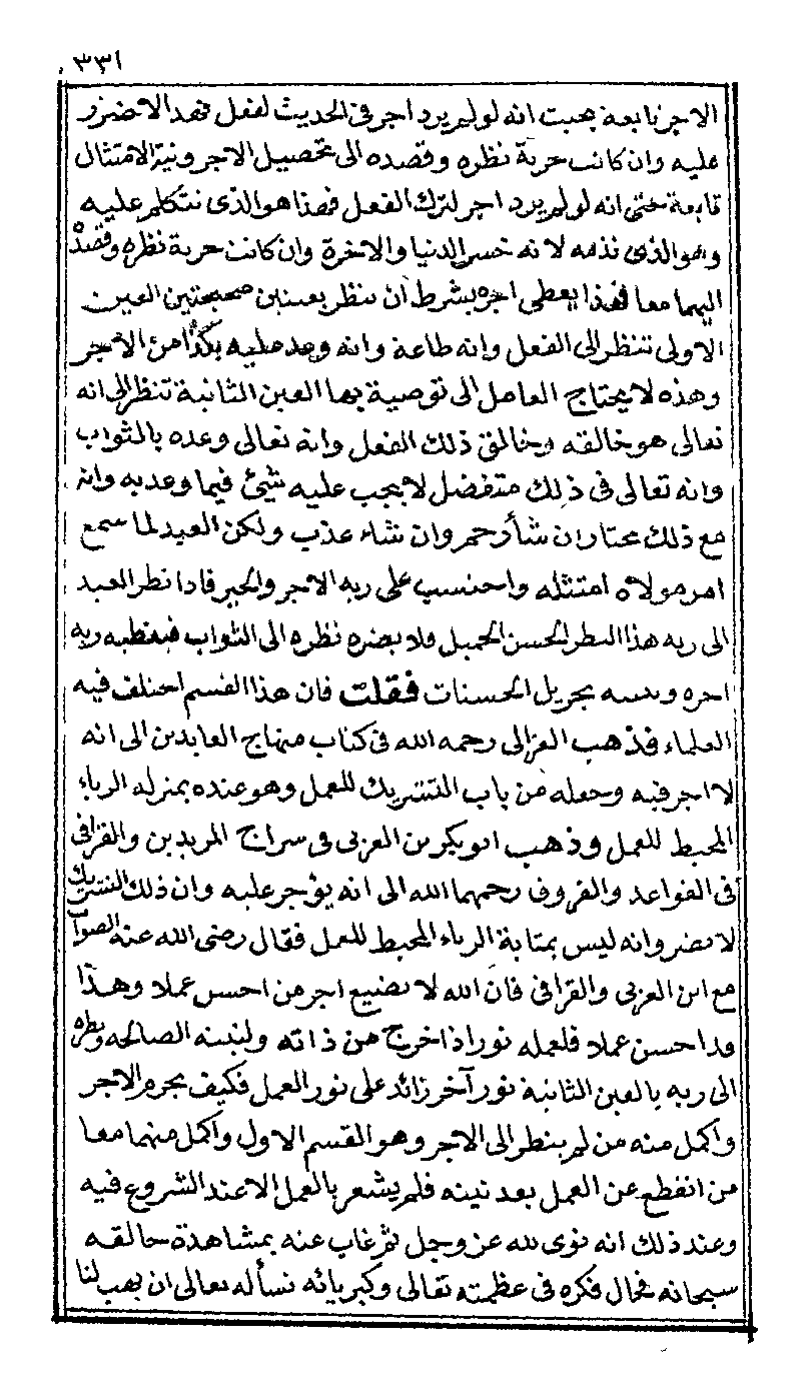 ٣٣١
الاجر تابعة بحيث انه لو لم يرد اجر في الحديث لفعل فهذا لا ضرر
عليه وان كانت حربة نظره وقصده الى تحصيل الاجر ونية الامتثال
تابعة حتى انه لو لم يرد اجر لترك الفعل فهذا هو الذى نتكلم عليه
وهو الذى نذمه لانه خسر الدنيا والاخرة وان كانت حربة نظره وقصده
اليهما معا فهذا يعطى اجره بشرط ان ينظر بعينين صحيحتين العين
الاولى تنظر الى الفعل وانه طاعة وانه وعد عليه بكذا من الاجر
وهذه لا يحتاج العامل الى توصية بها العين الثانية تنظر الى انه
تعالى هو خالقه وخالق ذلك الفعل وانه تعالى وعده بالثواب
وانه تعالى فى ذلك متفضل لا يجب عليه شئ فيما وعد به وانه
مع ذلك مختار ان شاء رحم وان شاء عذب ولكن العبد لما سمع
امر مولاه امتثله واحتسب على ربه الاجر والخير فاذا نظر العبد
الى ربه هذا النظر الحسن الجميل فلا يضره نظره الى الثواب فيعطيه ربه
اجره ويثيبه بجزيل الحسنات فقلت فان هذا القسم اختلف فيه
العلماء فذهب الغزالى رحمه الله فى كتاب منهاج العابدين الى انه
لا اجر فيه وجعله من باب التشريك للعمل وهو عنده بمنزلة الرياء
المحبط للعمل وذهب ابو بكر بن العربى فى سراج المريدين والقرافى
فى القواعد والفروق رحمهما الله الى انه يؤجر عليه وان ذلك التشريك
لا يضر وانه ليس بمثابة الرياء المحبط للعمل فقال رضى الله عنه الصواب
مع ابن العربى والقرافى فان الله لا يضيع اجر من احسن عملا وهذا
قد احسن عملا فلعمله نور اذا خرج من ذاته ولنيته الصالحه ونظره
الى ربه بالعين الثانية نور آخر زائد على نور العمل فكيف يحرم الاجر
واكمل منه من لم ينظر الى الاجر وهو القسم الاول واكمل منهما معا
من انقطع عن العمل بعد نيته فلم يشعر بالعمل الا عند الشروع فيه
وعند ذلك انه نوى لله عز وجل ثم غاب عنه بمشاهدة خالقه
سبحانه فجال فكره فى عظمته تعالى وكبريائه نسأله تعالى ان يهب لنا